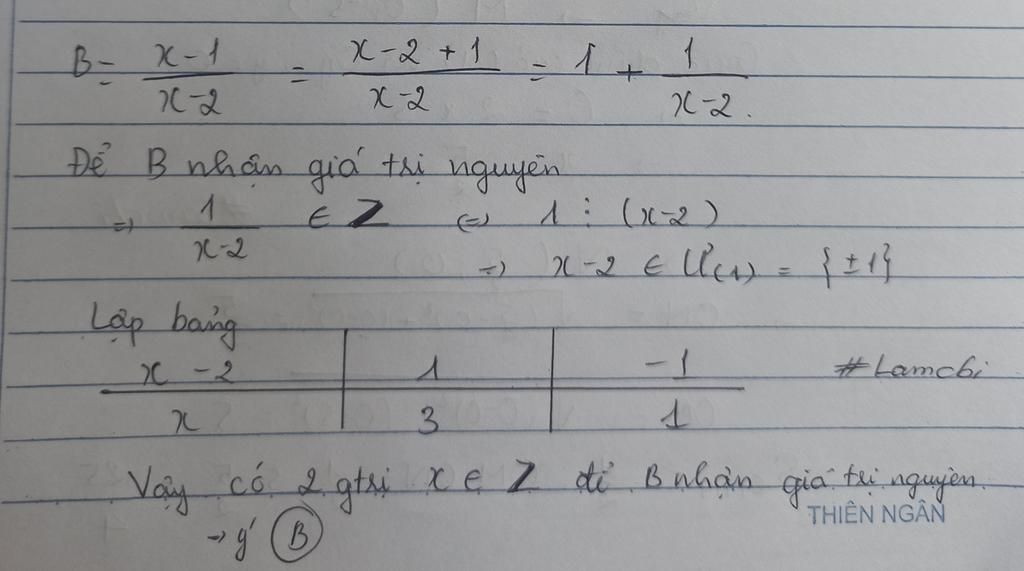 B = \frac{x-1}{x-2} = \frac{x-2+1}{x-2} = 1 + \frac{1}{x-2}.
Để B nhận giá trị nguyên
=> \frac{1}{x-2} ∈ Z <=> 1 ⋮ (x-2)
=> x-2 ∈ Ư(1) = {±1}
Lập bảng
x - 2 1 -1 #Lamchi
x 3 1
Vậy có 2 gtrị x ∈ Z để B nhận giá trị nguyên.
THIÊN NGÂN
→ ý B